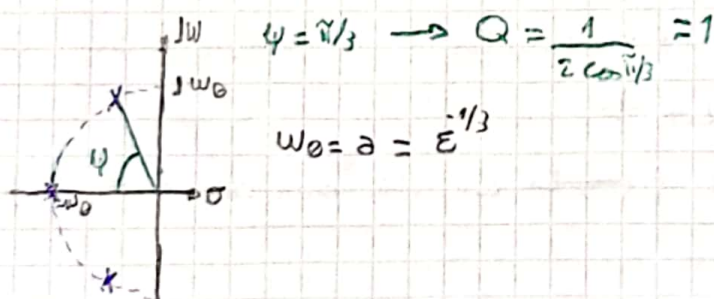 jω
ψ = π/3 → Q = 1 / (2 cos π/3) = 1
jω0
ω0 = a = ε^-1/3
ψ
σ
-ω0